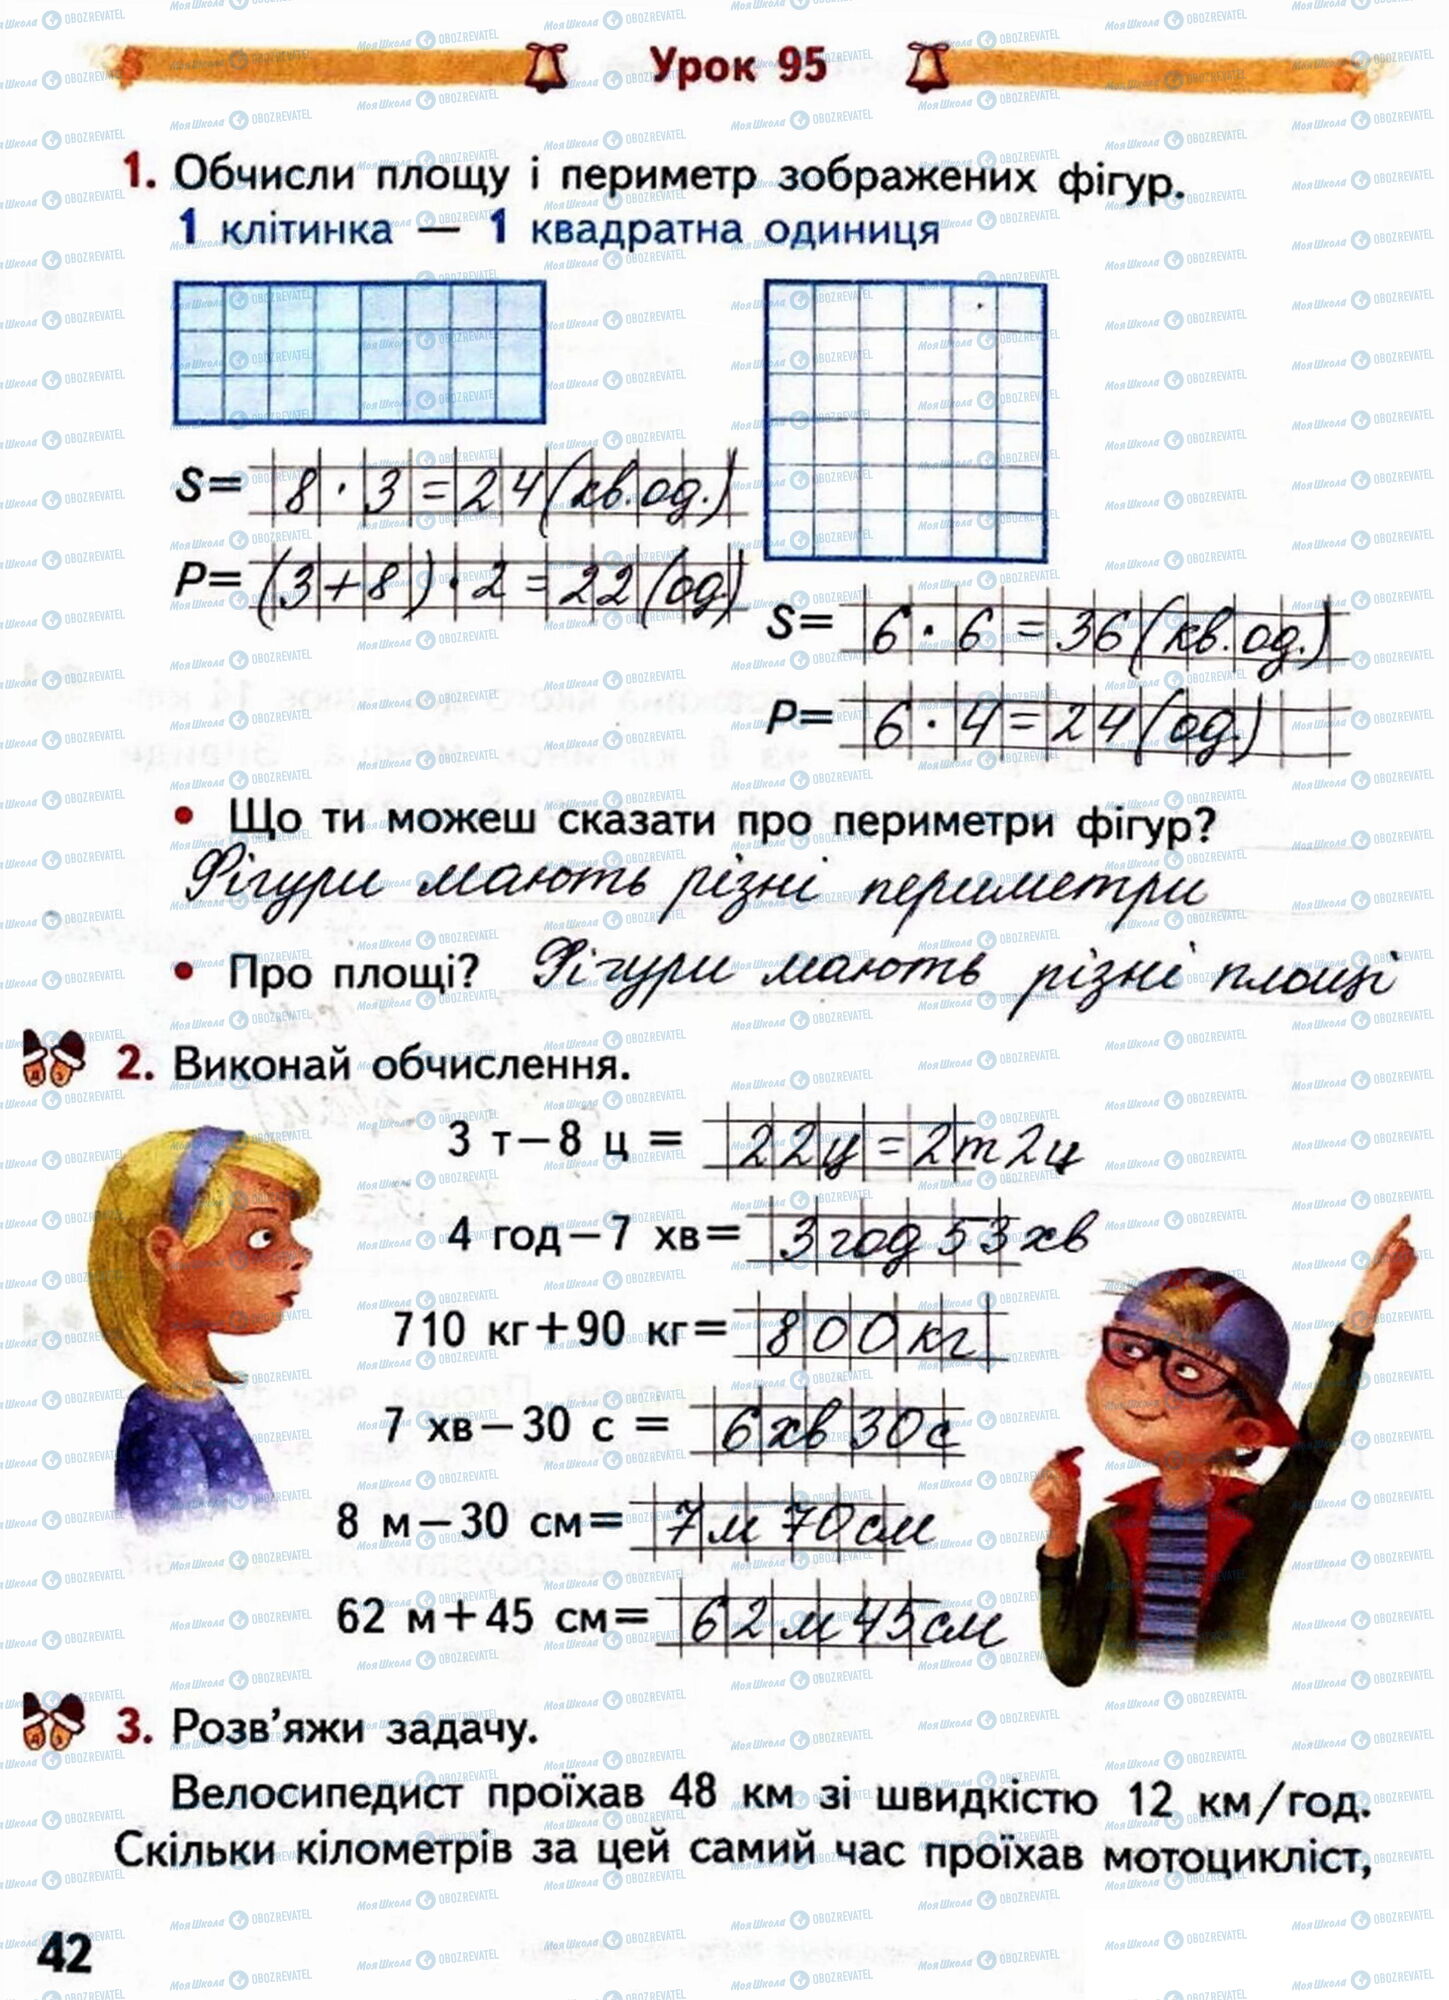 Урок 95
1. Обчисли площу і периметр зображених фігур.
1 клітинка — 1 квадратна одиниця
S= 8 · 3 = 24 (кв.од.)
P= (3+8) · 2 = 22 (од)
S= 6 · 6 = 36 (кв.од.)
P= 6 · 4 = 24 (од.)
• Що ти можеш сказати про периметри фігур?
Фігури мають різні периметри
• Про площі? Фігури мають різні площі
2. Виконай обчислення.
3 т−8 ц = 22ц = 2т 2ц
4 год−7 хв= 3 год 53 хв
710 кг+90 кг= 800 кг
7 хв−30 с = 6 хв 30 с
8 м−30 см= 7 м 70 см
62 м+45 см= 62 м 45 см
3. Розв'яжи задачу.
Велосипедист проїхав 48 км зі швидкістю 12 км/год.
Скільки кілометрів за цей самий час проїхав мотоцикліст,
42